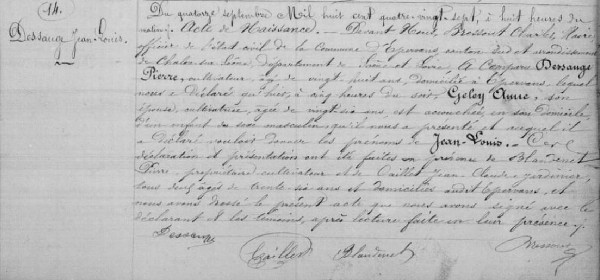 14.
Dessauge Jean-Louis.
Du quatorze septembre Mil huit cent quatre-vingt-sept, à huit heures du
matin. Acte de Naissance. — Devant Nous Charles, Maire
officier de l'état civil de la Commune d'Epervans, canton sud et arrondissement
de Chalon-sur-Saône, département de Saône et Loire, a comparu Dessauge
Pierre, cultivateur, âgé de vingt huit ans, domicilié à Epervans, lequel
nous a déclaré qu'hier, à cinq heures du soir, Geley Anne, son
épouse, cultivatrice, âgée de vingt six ans, est accouchée, en son domicile
d'un enfant du sexe masculin, qu'il nous a présenté et auquel il
a déclaré vouloir donner les prénoms de Jean-Louis. Ces
déclaration et présentation ont été faites en présence de Blandenet
Pierre, propriétaire cultivateur et de Caillet Jean Claude, jardinier,
tous deux âgés de trente six ans et domiciliés audit Epervans, et
nous avons dressé le présent acte que nous avons signé avec le
déclarant et les témoins, après lecture faite en leur présence.
Dessauge
Caillet Blandenet